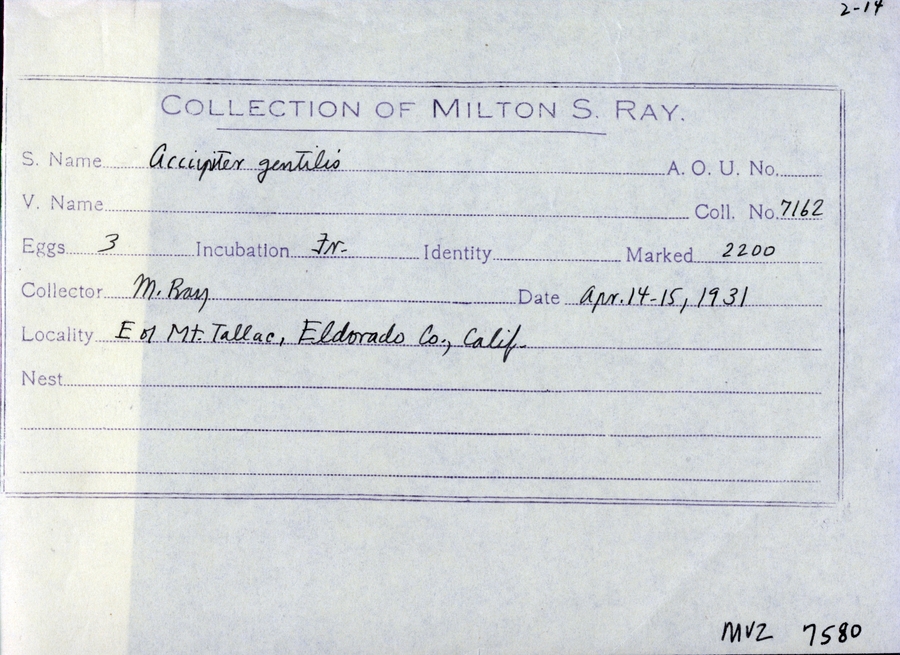 2-14
COLLECTION OF MILTON S. RAY.
S. Name Accipiter gentilis A. O. U. No.
V. Name Coll. No. 7162
Eggs 3 Incubation Fr. Identity Marked 2200
Collector M. Ray Date Apr. 14-15, 1931
Locality E of Mt. Tallac, Eldorado Co., Calif.
Nest
MVZ 7580